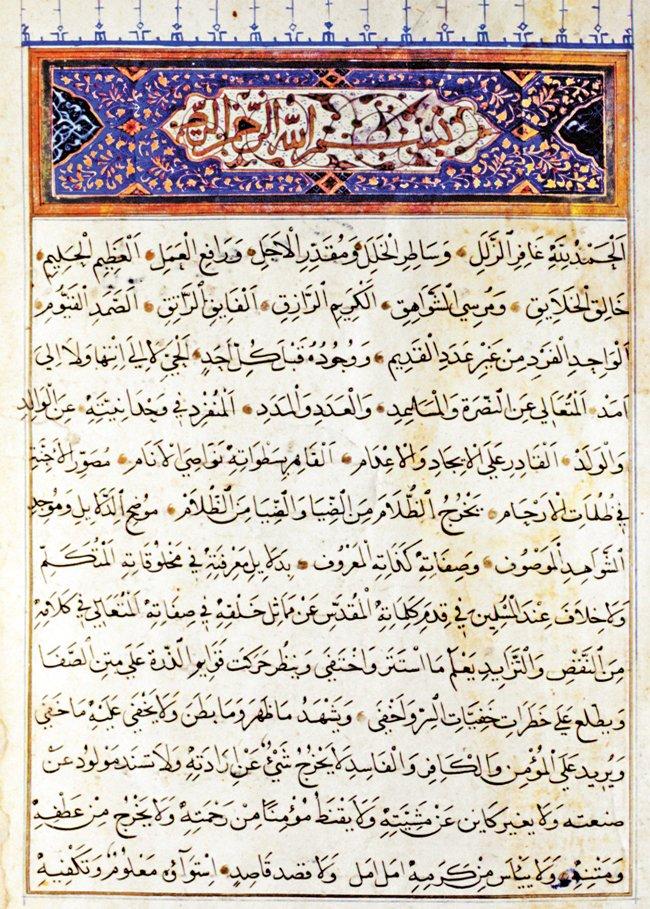 بسم الله الرحمن الرحيم
الحمد لله غافر الزلل وساطر الخلل ومقدر الاجل ورافع العمل العظيم الحليم
خالق الخلايق ومرسي الشواهق الكريم الرازق الفاتق الراتق الصمد القيوم
الواحد الفرد من غير عدد القديم ووجوده قبل كل احد الحي لا الى انتها ولا الى
امد المتعالي عن النصرة والعدد والمدد المنفرد في وحدانيته عن الوالد
والولد القادر على الايجاد والاعدام القاهر بسطواته نواصي الانام مصور الاجنة
في ظلمات الارحام يخرج الظلام من الضيا والضيا من الظلام موضح الدلايل وموجد
الشواهد الموصوف وصفاته المعروف بدلايل معرفته في مخلوقاته المتكلم
ولا خلاف عند المسلمين في قدم كلماته المقدس عن مماثل خلقه في صفاته المتعالي في
من النقص والتزايد يعلم ما استتر واختفى وينظر حركت الذرة على متن الصفا
ويطلع على خطرات خفيات السر واخفى ويشهد ما ظهر وما بطن ولا يخفى عليه ما خفى
ويريد على المؤمن والكافر والفاسد لا يخرج شيء عن ارادته ولا تستند مولود عن
صنعته ولا كاين عن مشيته ولا يقنط مؤمنا من رحمته ولا يخرج من عطفه
ومنته ولا يياس من كرمه امل امل ولا قصد قاصد استواؤه معلوم وتكفيه